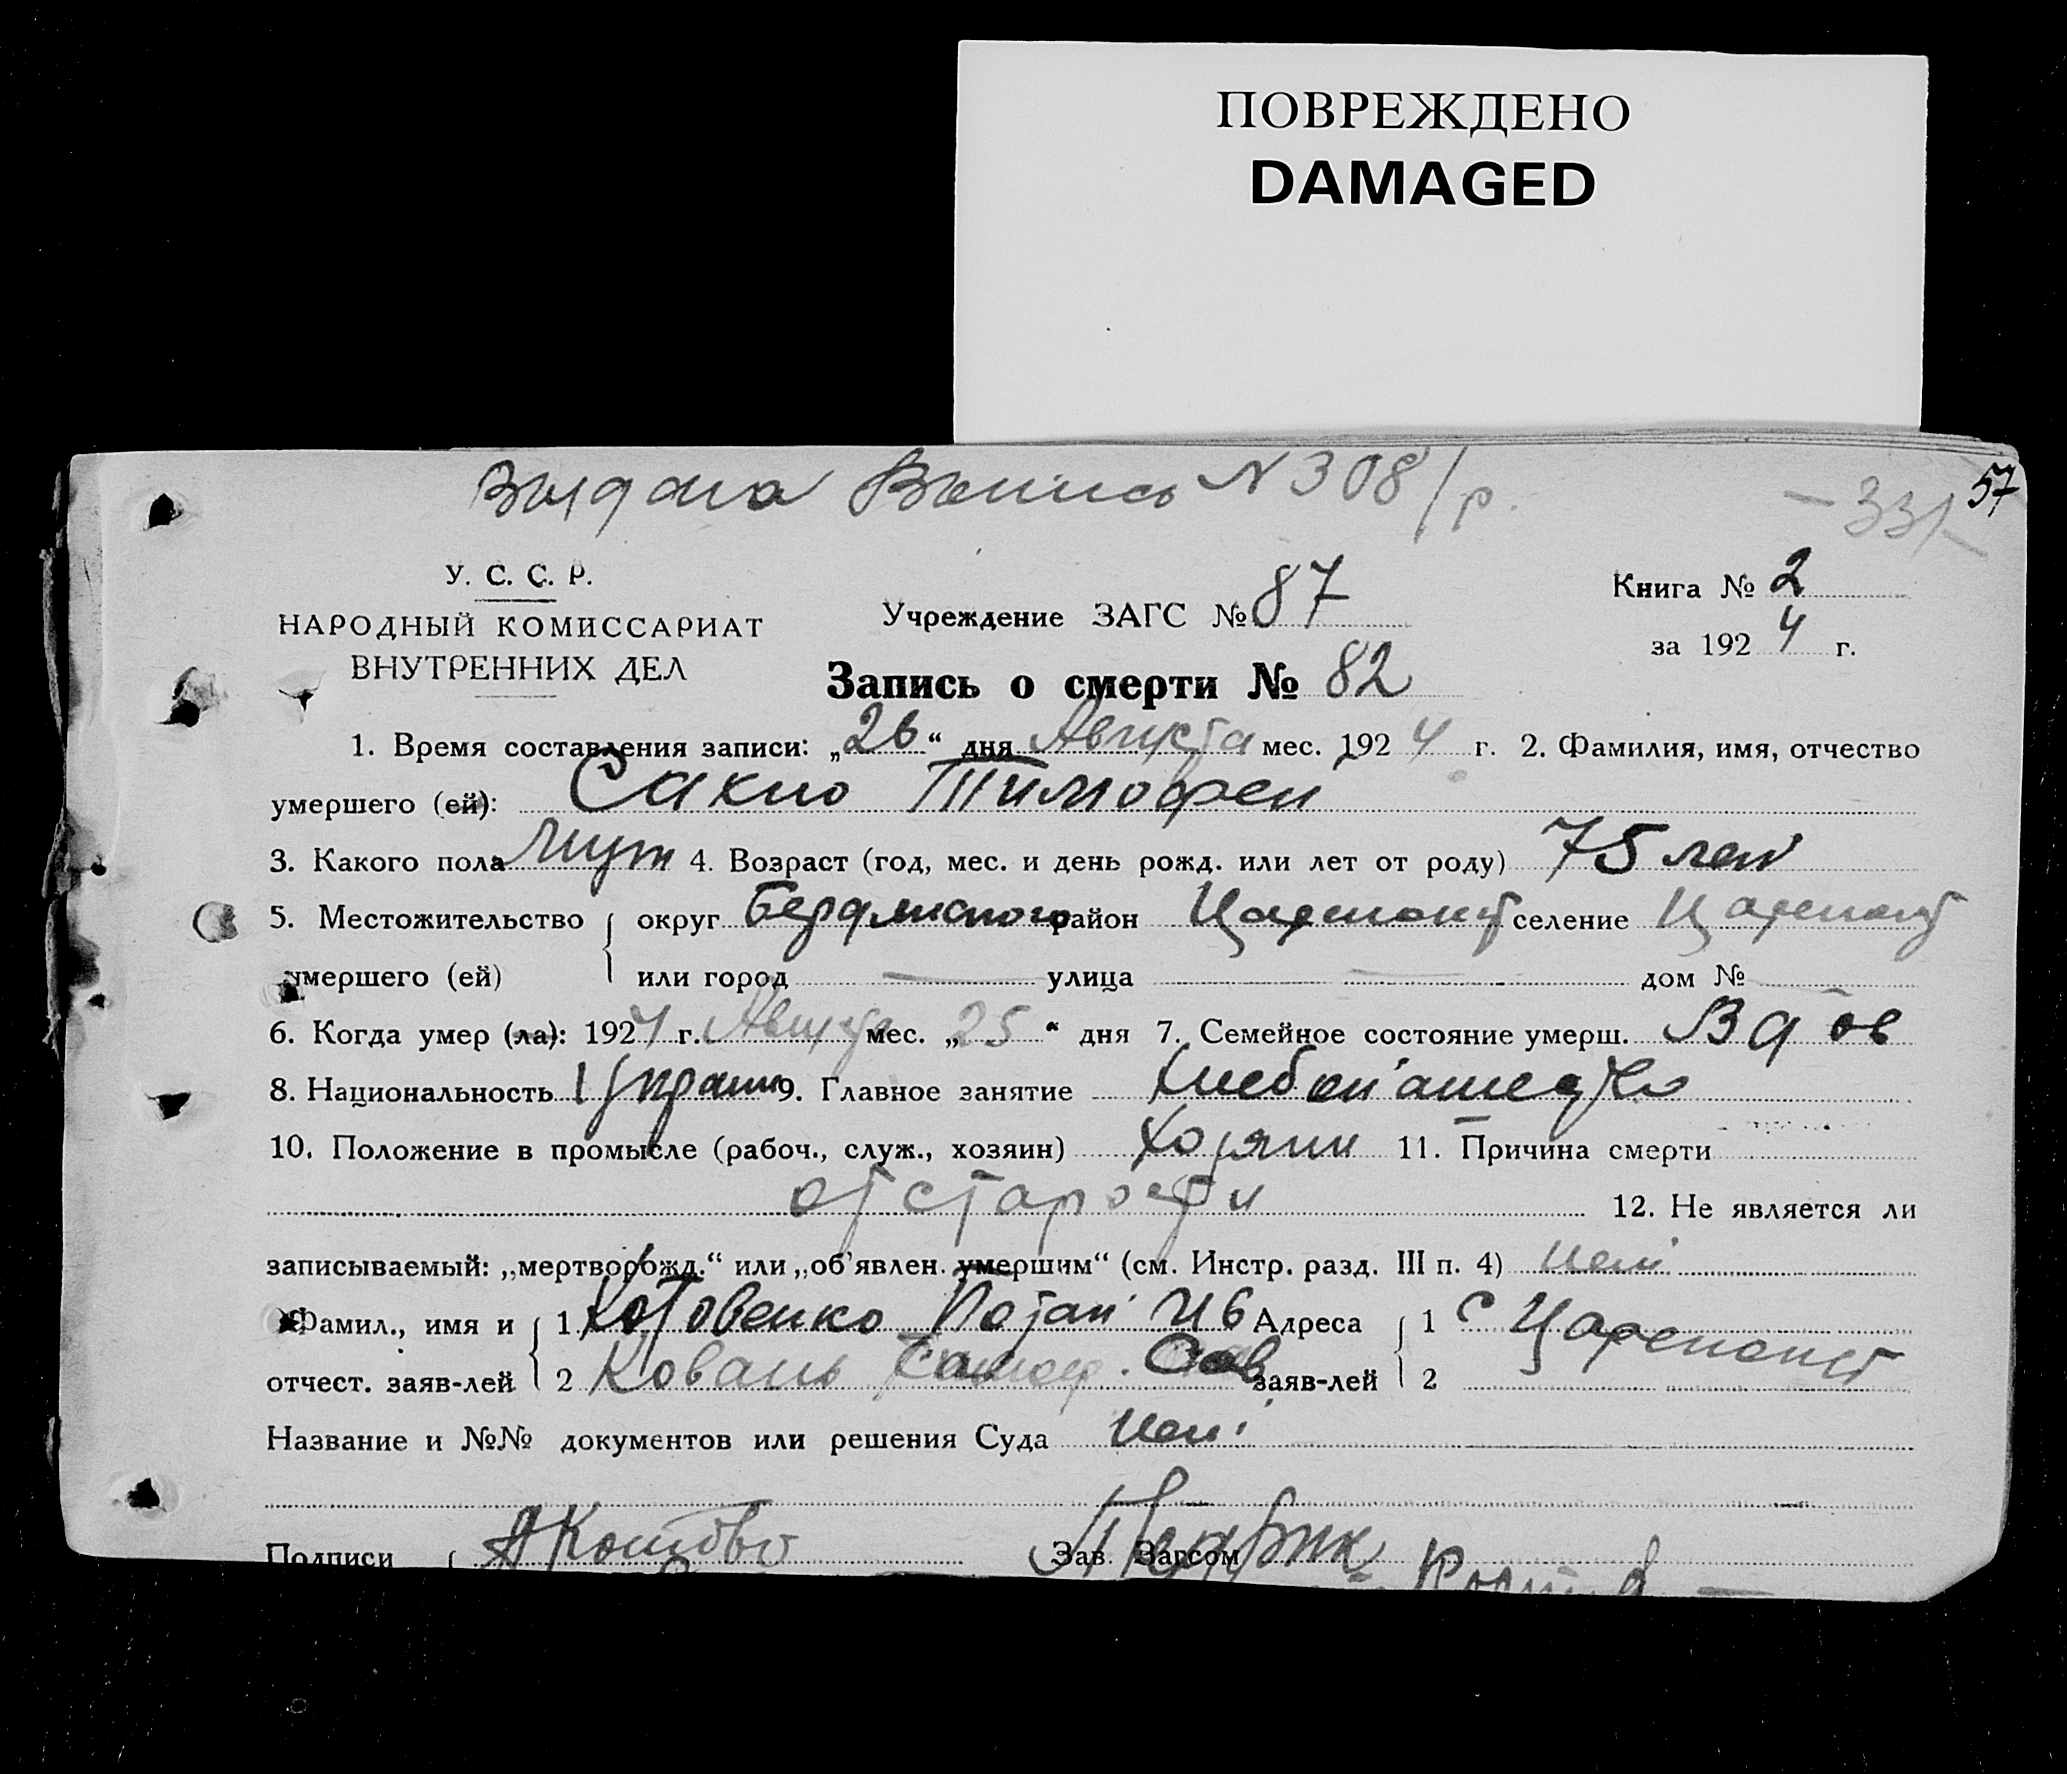 ПОВРЕЖДЕНО
DAMAGED
Выдана Выпись N 308/р.
57
У. С. С. Р.
НАРОДНЫЙ КОМИССАРИАТ
ВНУТРЕННИХ ДЕЛ
Учреждение ЗАГС № 87
Книга № 2
за 1924 г.
Запись о смерти № 82
1. Время составления записи: „26“ дня Августа мес. 1924 г. 2. Фамилия, имя, отчество
умершего (ей): Сакно Тимофей
3. Какого пола муж 4. Возраст (год, мес. и день рожд. или лет от роду) 75 лет
5. Местожительство округ Бердянского район селение
умершего (ей) или город — улица — дом №
6. Когда умер (ла): 1924 г. Августа мес. „25“ дня 7. Семейное состояние умерш. Вдов
8. Национальность Украин 9. Главное занятие
10. Положение в промысле (рабоч., служ., хозяин) Хозяин 11. Причина смерти
от старости 12. Не является ли
записываемый: „мертворожд.“ или „об’явлен. умершим“ (см. Инстр. разд. III п. 4) нет
Фамил., имя и 1 Котовенко Потап Ив Адреса 1 с
отчест. заяв-лей 2 Коваль Сав заяв-лей 2
Название и №№ документов или решения Суда нет
Подписи Зав. Загсом